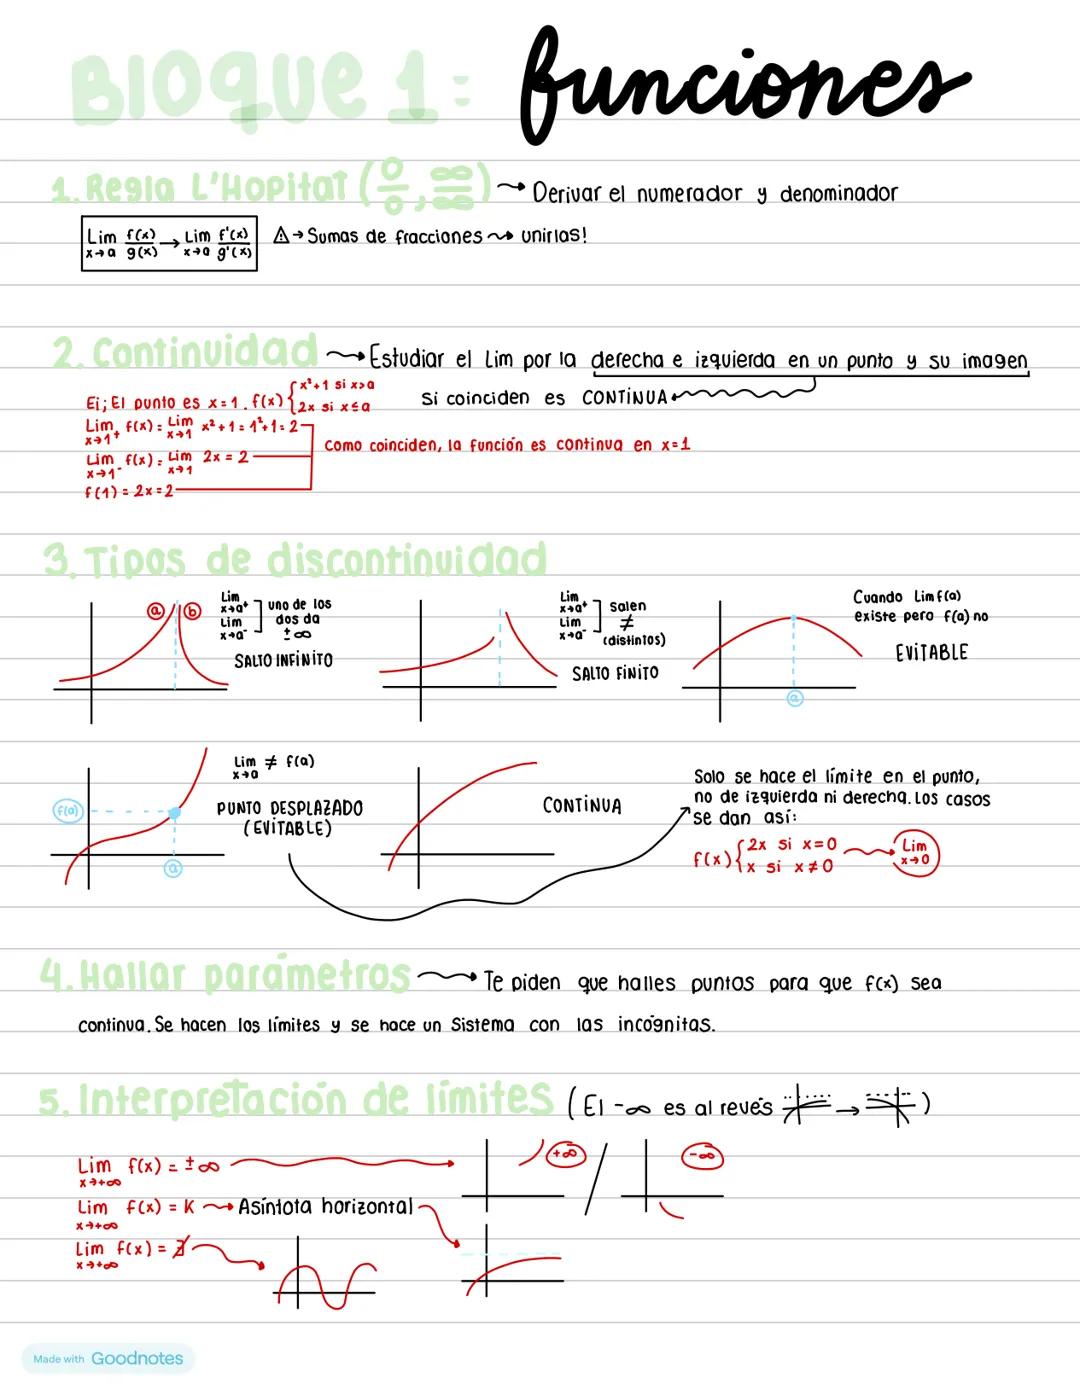 Bloque 1: funciones
1. Regla L'Hopitat (0/0, ∞/∞) → Derivar el numerador y denominador
Lim x→a f(x)/g(x) → Lim x→a f'(x)/g'(x) ⚠ → Sumas de fracciones → unirlas!
2. Continuidad → Estudiar el Lim por la derecha e izquierda en un punto y su imagen
Si coinciden es CONTINUA
Ej; El punto es x=1. f(x) { x²+1 si x>a
2x si x≤a
Lim x→1⁺ f(x) = Lim x→1 x²+1 = 1²+1 = 2
Como coinciden, la función es continua en x=1
Lim x→1⁻ f(x) = Lim x→1 2x = 2
f(1) = 2x = 2
3. Tipos de discontinuidad
a b
Lim x→a⁺
Lim x→a⁻
uno de los
dos da
±∞
SALTO INFINITO
Lim x→a⁺
Lim x→a⁻
Salen
≠
(distintos)
SALTO FINITO
Cuando Lim f(a)
existe pero f(a) no
EVITABLE
a
f(a)
a
Lim x→a ≠ f(a)
PUNTO DESPLAZADO
(EVITABLE)
CONTINUA
Solo se hace el límite en el punto,
no de izquierda ni derecha. Los casos
se dan así:
f(x) { 2x si x=0
x si x≠0
Lim x→0
4. Hallar parámetros → Te piden que halles puntos para que f(x) sea
continua. Se hacen los límites y se hace un sistema con las incógnitas.
5. Interpretación de límites (El -∞ es al revés → )
Lim x→+∞ f(x) = ±∞
+∞ / -∞
Lim x→+∞ f(x) = K → Asíntota horizontal
Lim x→+∞ f(x) = ∄
Made with Goodnotes